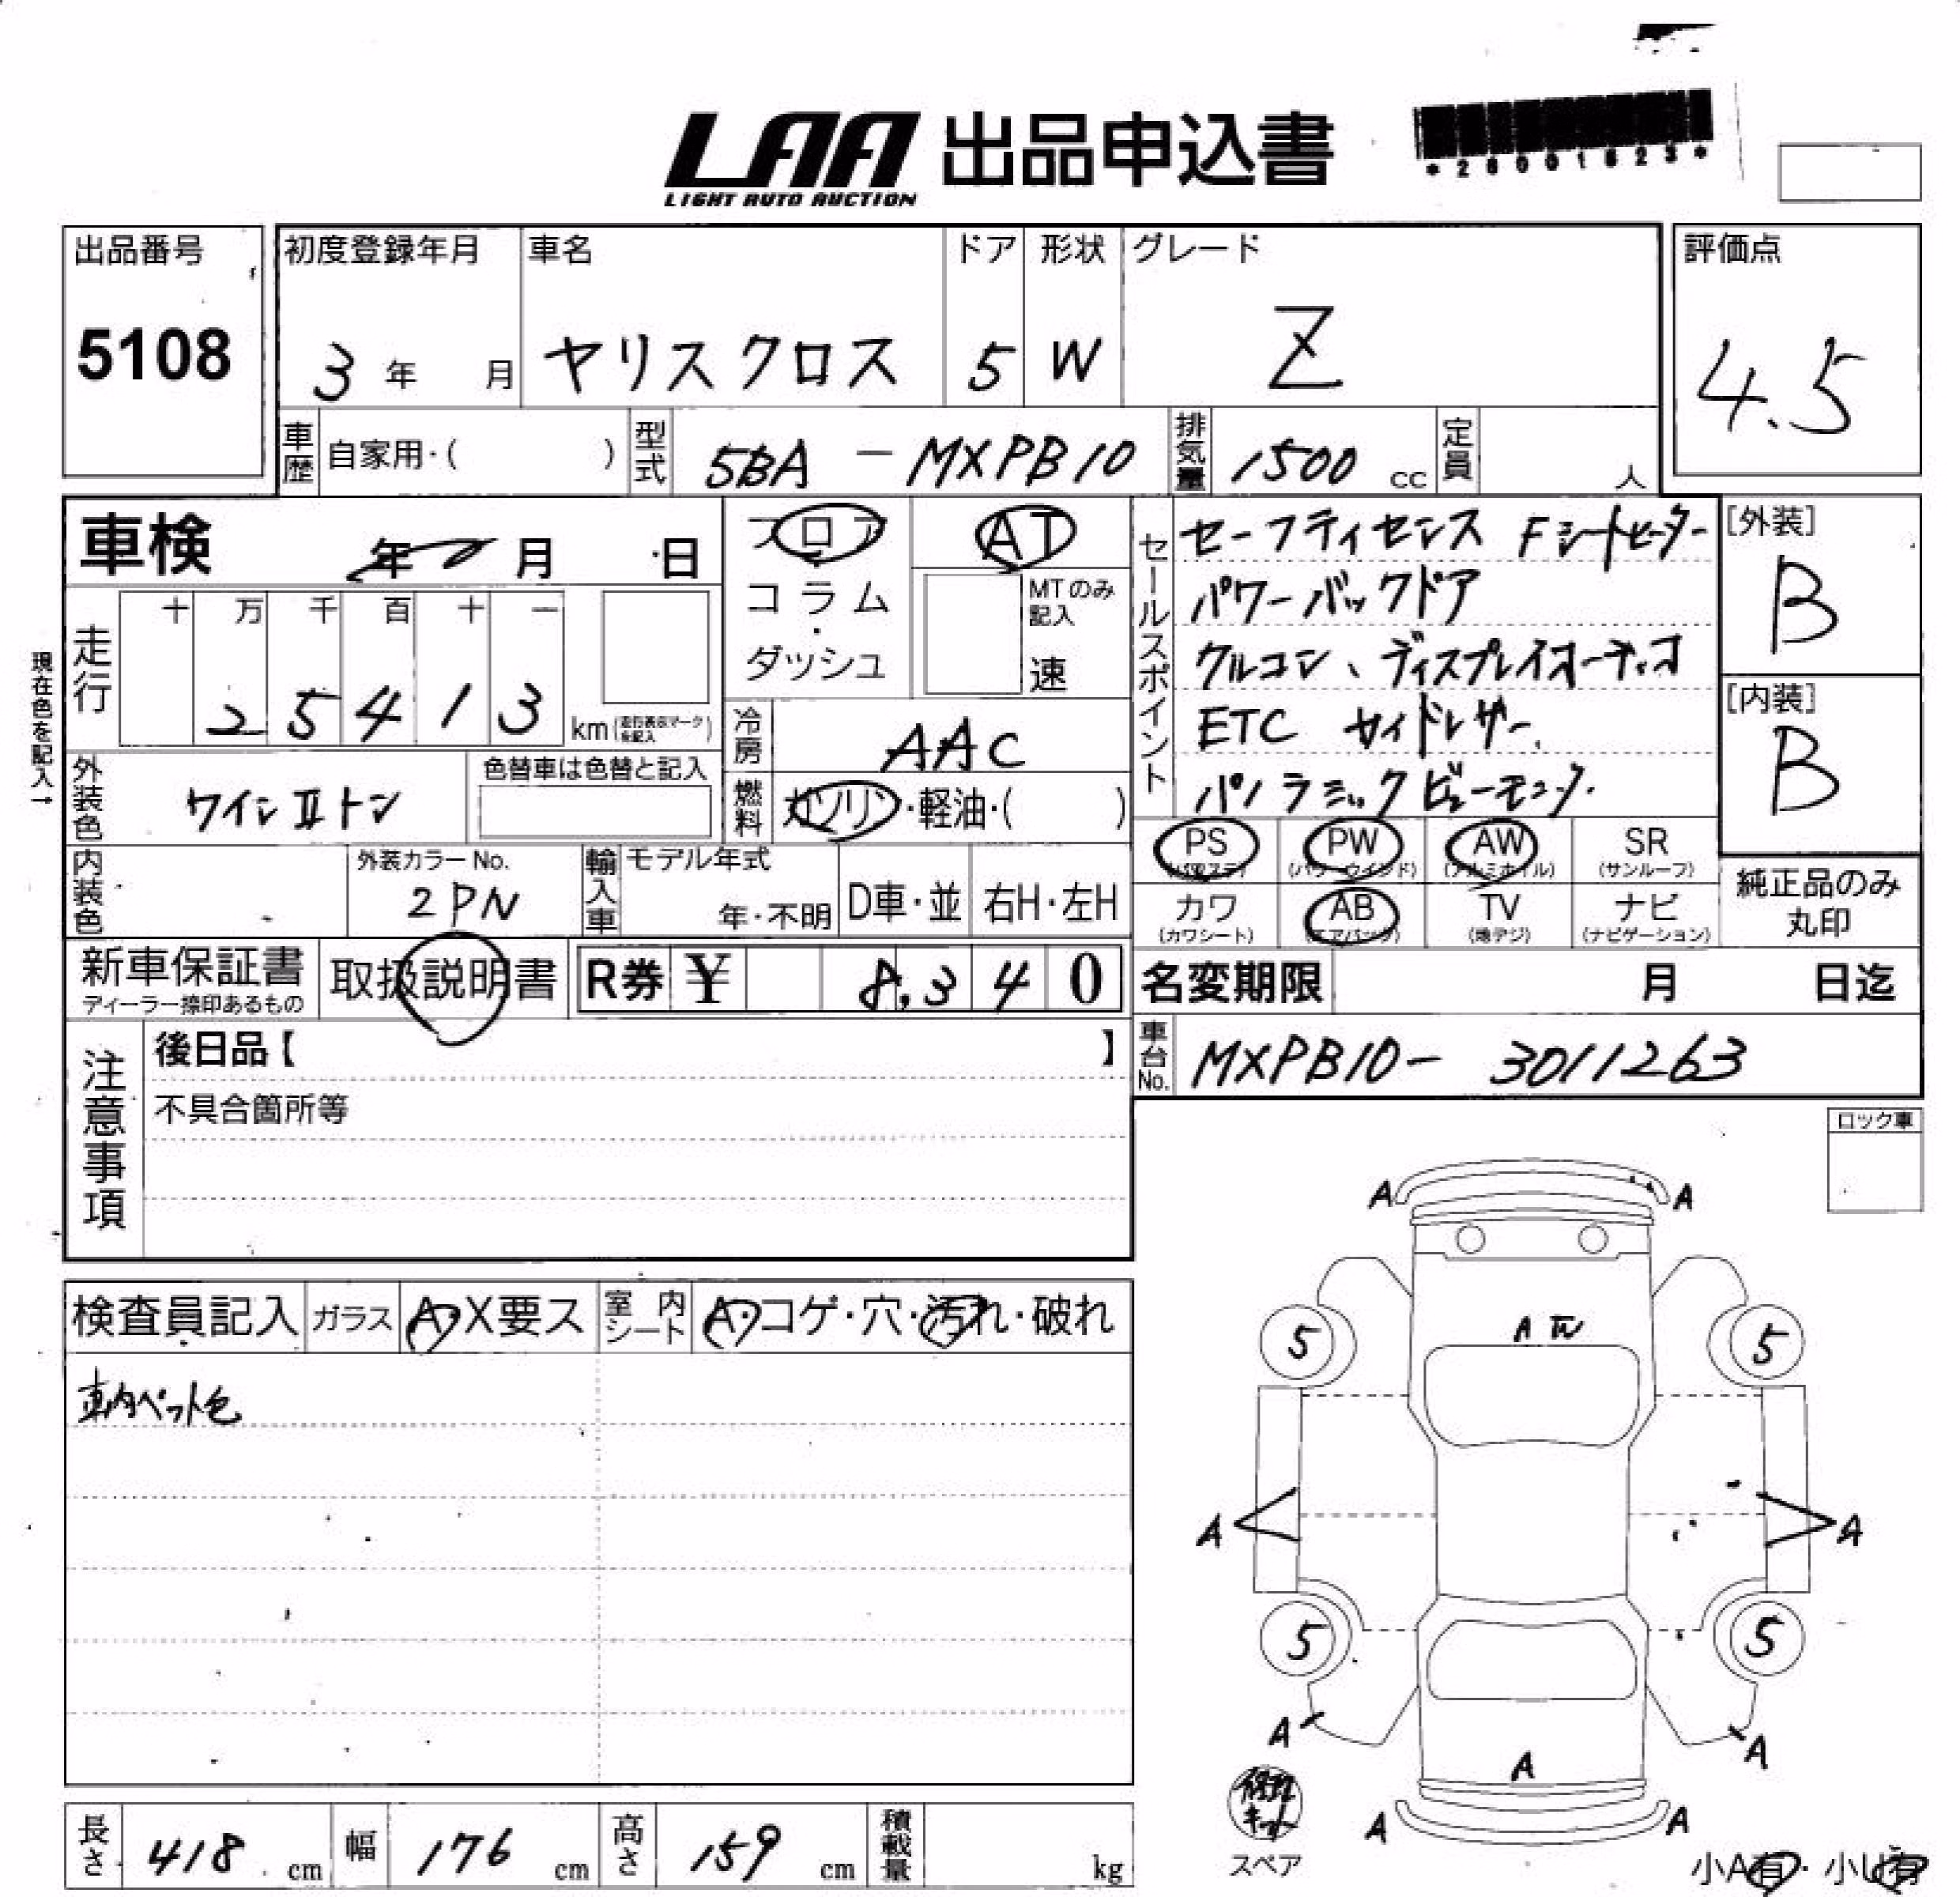 LAA 出品申込書
LIGHT AUTO AUCTION
*26001623*
出品番号
5108
初度登録年月
3年 月
車名
ヤリスクロス
ドア
5
形状
W
グレード
Z
評価点
4.5
車歴 自家用・( )
型式 5BA - MXPB10
排気量 1500 cc
定員 人
車検 年 月 日
現在色を記入→
走行
十 万 千 百 十 一
2 5 4 1 3 km (走行表示マークを記入)
フロア
コラム
・
ダッシュ
AT
MTのみ記入
速
冷房 AAC
燃料 ガソリン・軽油・( )
外装色 ワインⅡトン
色替車は色替と記入
内装色
外装カラーNo.
2PN
輸入車
モデル年式
年・不明
D車・並
右H・左H
セールスポイント
セーフティセンス Fシートヒーター
パワーバックドア
クルコン、ディスプレイオーディオ
ETC サイドレザー
パノラミックビューモニター
[外装]
B
[内装]
B
PS (パワステ)
PW (パワーウインド)
AW (アルミホイル)
SR (サンルーフ)
カワ (カワシート)
AB (エアバック)
TV (地デジ)
ナビ (ナビゲーション)
純正品のみ
丸印
新車保証書
ディーラー捺印あるもの
取扱説明書
R券 ¥ 8,340
名変期限 月 日迄
車台No. MXPB10- 3011263
注意事項
後日品【 】
不具合箇所等
ロック車
検査員記入
ガラス A・X要ス
室内シート A・コゲ・穴・汚れ・破れ
A A
A W
5 5
A A
5 5
A A
A
A A
修理キット
スペア
小A有・小U有
長さ 418 cm
幅 176 cm
高さ 159 cm
積載量 kg